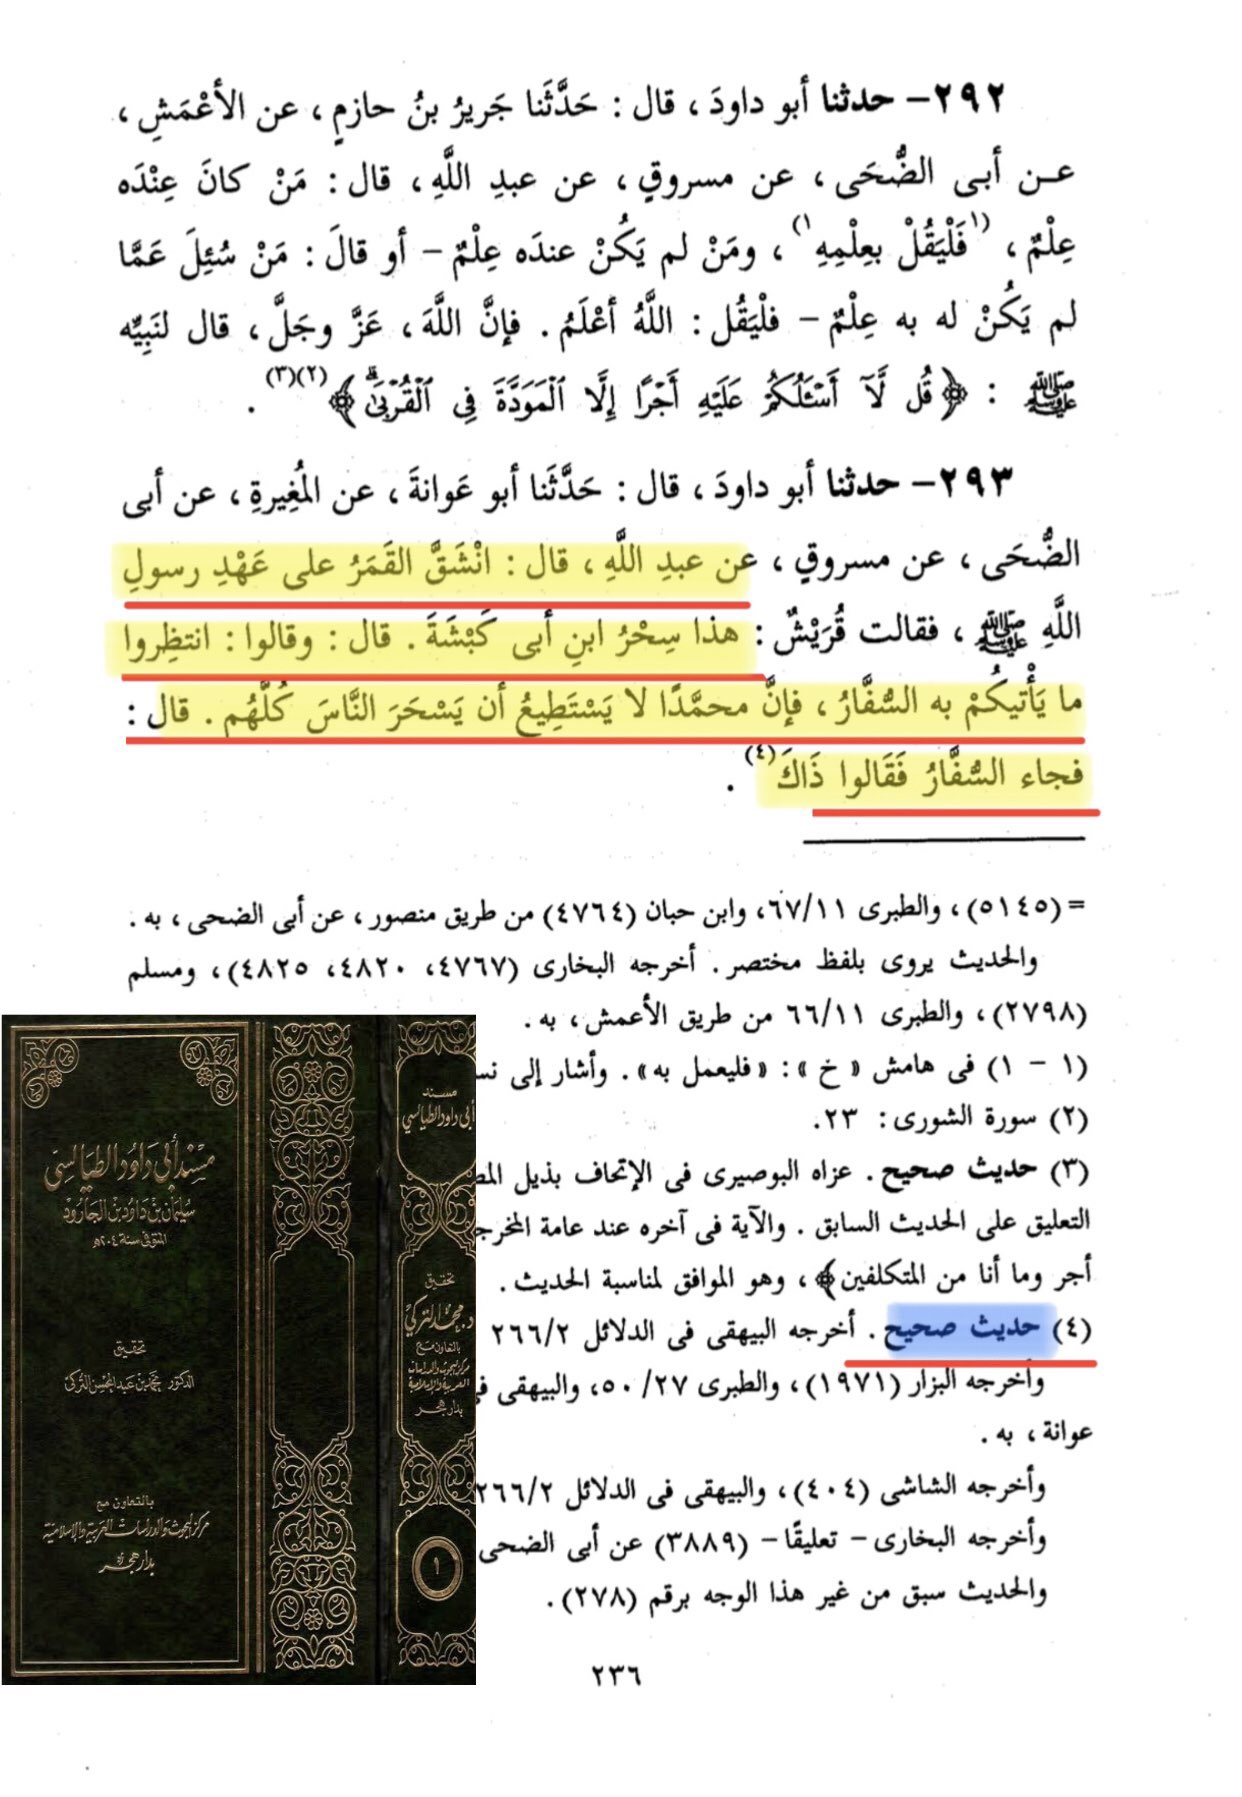 ٢٩٢- حدثنا أبو داودَ ، قال : حَدَّثَنا جَريرُ بنُ حازمٍ ، عن الأعْمَشِ ،
عن أبى الضُّحَى ، عن مسروقٍ ، عن عبدِ اللَّهِ ، قال : مَنْ كانَ عِنْدَه
عِلْمٌ ، (١فَلْيَقُلْ بعِلْمِهِ١) ، ومَنْ لم يَكُنْ عندَه عِلْمٌ - أو قالَ : مَنْ سُئِلَ عَمَّا
لم يَكُنْ له به عِلْمٌ - فلْيَقُل : اللَّهُ أعْلَمُ . فإنَّ اللَّهَ ، عَزَّ وجَلَّ ، قال لنَبِيِّه
ﷺ : ﴿قُل لَّآ أَسْـَٔلُكُمْ عَلَيْهِ أَجْرًا إِلَّا ٱلْمَوَدَّةَ فِى ٱلْقُرْبَىٰۗ﴾(٢)(٣) .
٢٩٣- حدثنا أبو داودَ ، قال : حَدَّثَنا أبو عَوانةَ ، عن المُغِيرةِ ، عن أبى
الضُّحَى ، عن مسروقٍ ، عن عبدِ اللَّهِ ، قال : انْشَقَّ القَمَرُ على عَهْدِ رسولِ
اللَّهِ ﷺ ، فقالت قُرَيْشٌ : هذا سِحْرُ ابنِ أبى كَبْشَةَ . قال : وقالوا : انتظِروا
ما يَأْتيكُمْ به السُّفَّارُ ، فإنَّ محمَّدًا لا يَسْتَطِيعُ أن يَسْحَرَ النَّاسَ كُلَّهُم . قال :
فجاء السُّفَّارُ فَقَالوا ذَاكَ(٤) .
= (٥١٤٥) ، والطبرى ٦٧/١١، وابن حبان (٤٧٦٤) من طريق منصور ، عن أبى الضحى ، به .
والحديث يروى بلفظ مختصر . أخرجه البخارى (٤٧٦٧، ٤٨٢٠، ٤٨٢٥) ، ومسلم
(٢٧٩٨) ، والطبرى ٦٦/١١ من طريق الأعمش ، به .
(١ - ١) فى هامش « خ » : « فليعمل به » . وأشار إلى
(٢) سورة الشورى : ٢٣.
(٣) حديث صحيح . عزاه البوصيرى فى الإتحاف بذيل
التعليق على الحديث السابق . والآية فى آخره عند عامة
أجر وما أنا من المتكلفين﴾ ، وهو الموافق لمناسبة الحديث .
(٤) حديث صحيح . أخرجه البيهقى فى الدلائل ٢٦٦/٢
وأخرجه البزار (١٩٧١) ، والطبرى ٢٧/ ٥٠، والبيهقى
عوانة ، به .
وأخرجه الشاشى (٤٠٤) ، والبيهقى فى الدلائل ٢٦٦/٢
وأخرجه البخارى - تعليقًا - (٣٨٨٩) عن أبى الضحى
والحديث سبق من غير هذا الوجه برقم (٢٧٨) .
٢٣٦
مسند أبي داود الطيالسي
سليمان بن داود بن الجارود
المتوفى سنة ٢٠٤هـ
تحقيق
الدكتور محمد بن عبد المحسن التركي
بالتعاون مع
مركز البحوث والدراسات العربية والإسلامية
بدار هجر
مسند
أبي داود الطيالسي
تحقيق
د. محمد التركي
بالتعاون مع
مركز البحوث والدراسات
العربية والإسلامية
بدار هجر
١